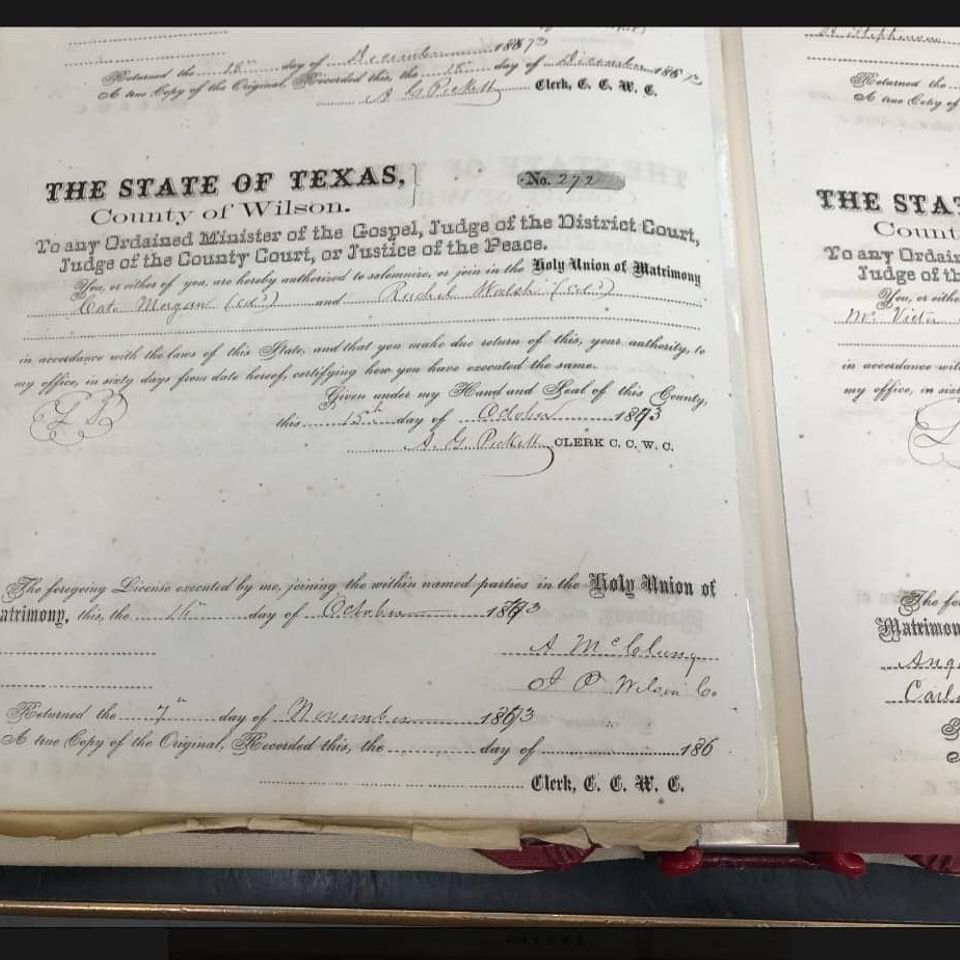 Returned the 15th day of December 1873
A true Copy of the Original, Recorded this, the 15 day of December 186
A G Pickett Clerk, C. C. W. C.
THE STATE OF TEXAS,
County of Wilson.
No. 272
To any Ordained Minister of the Gospel, Judge of the District Court,
Judge of the County Court, or Justice of the Peace.
You, or either of you, are hereby authorized to solemnize, or join in the Holy Union of Matrimony
Cato Morgan (cold) and Rachel Walsh (cold)
in accordance with the laws of this State, and that you make due return of this, your authority, to
my office, in sixty days from date hereof, certifying how you have executed the same.
Given under my Hand and Seal of this County,
this 15th day of October 1873
A. G. Pickett CLERK C. C. W. C.
The foregoing License executed by me, joining the within named parties in the Holy Union of
atrimony, this, the day of October 1873
A McClung
J P Wilson Co
Returned the 7th day of November 1873
A true Copy of the Original, Recorded this, the day of 186
Clerk, C. C. W. C.
Returned the
A true Copy of
THE STA
Count
To any Ordain
Judge of th
You, or eithe
Mr. Victor
in accordance wit
my office, in sixt
The fo
Matrimon